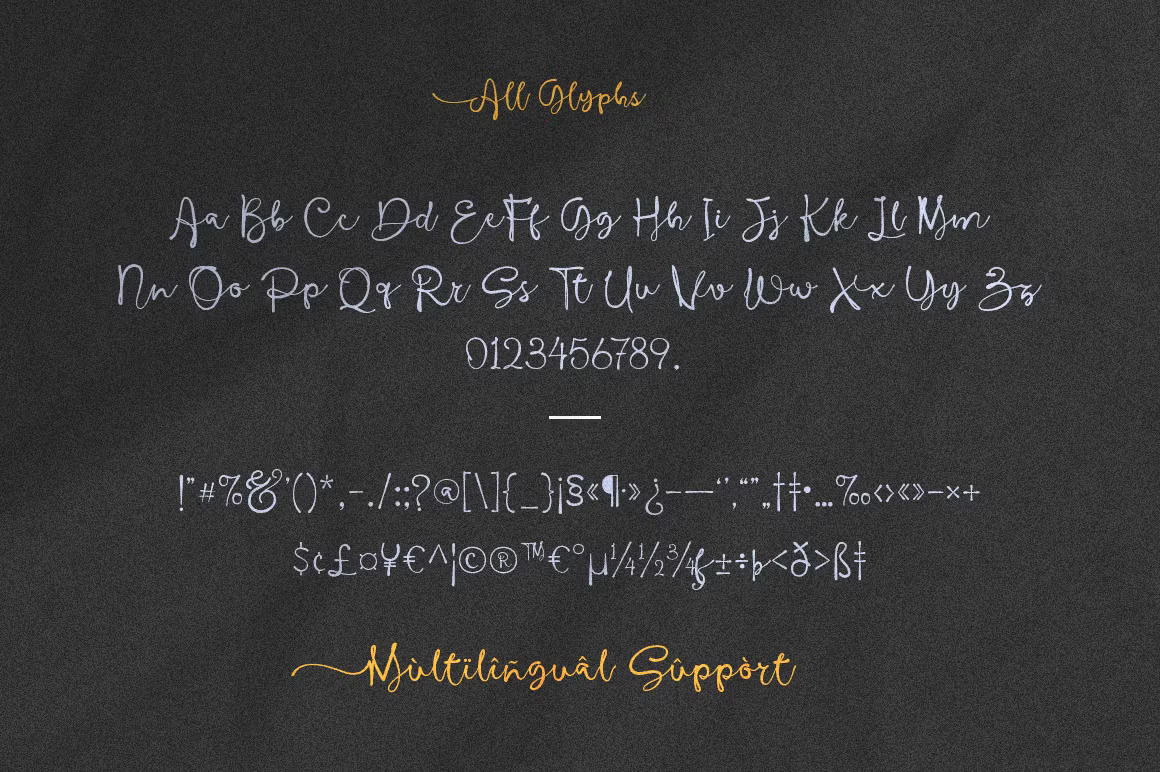 All Glyphs
Aa Bb Cc Dd Ee Ff Gg Hh Ii Jj Kk Ll Mm
Nn Oo Pp Qq Rr Ss Tt Uu Vv Ww Xx Yy Zz
0123456789.
!"#%&'()*,-./:;?@[\]{_}¡§«¶·»¿–—‘’‚“”„†‡•…‰‹›«»−×+
$¢£¤¥€^¦©®™€°µ¼½¾ƒ±÷þ<ð>ß‡
Mùltïlîñguâl Sûppòrt